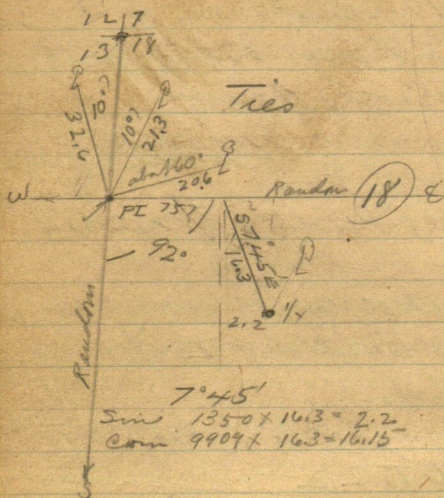 12 7
13 18
Ties
10.0
32.6
10°?
21.3
abt 60°
20.6
W
Random
18
E
PI 757
92°
S 7°45' E
16.3
2.2
1/4
Random
7°45'
Sin 1350 x 16.3 = 2.2
Cosin 9909 x 163 = 16.15